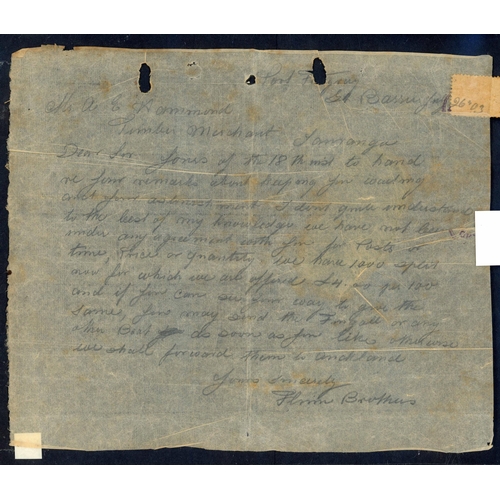 Port Fitzroy
Gt Barrier
96/03
Mr A E Hammond
Timber Merchant Tauranga
Dear Sir Yours of the 18th inst to hand
re your remarks about keeping you waiting
and your astonishment I dont quite understand
to the best of my knowledge we have not been
under any agreement with you for Posts or
time Price or Quantity We have 1000 split
now for which we are offered £4. as per 100
and if you can see your way to give the
same, you may send the or any
other Boat as soon as you like otherwise
we shall forward them to Auckland
Yours Sincerely
Flinn Brothers